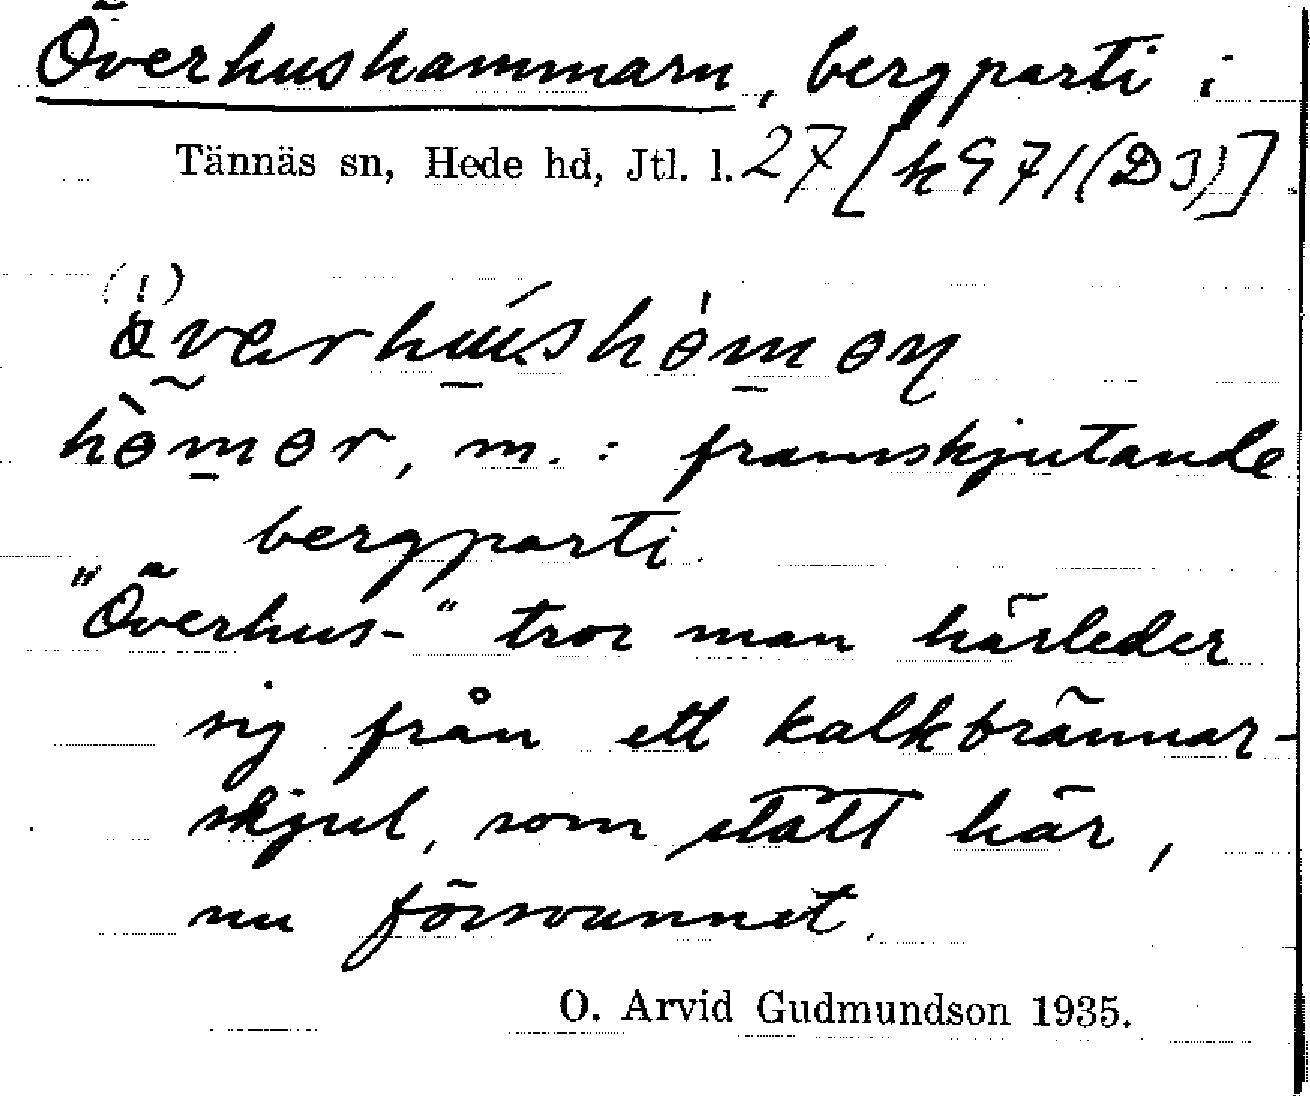 Överhushammarn, bergparti i
Tännäs sn, Hede hd, Jtl. l. 27 [k971(D3)]
(!)
överhúshömön
hömör, m. : framskjutande
bergparti.
"Överhus-" tror man härleder
sig från ett kalkbrännar-
skjul, som stått här,
nu försvunnet.
O. Arvid Gudmundson 1935.